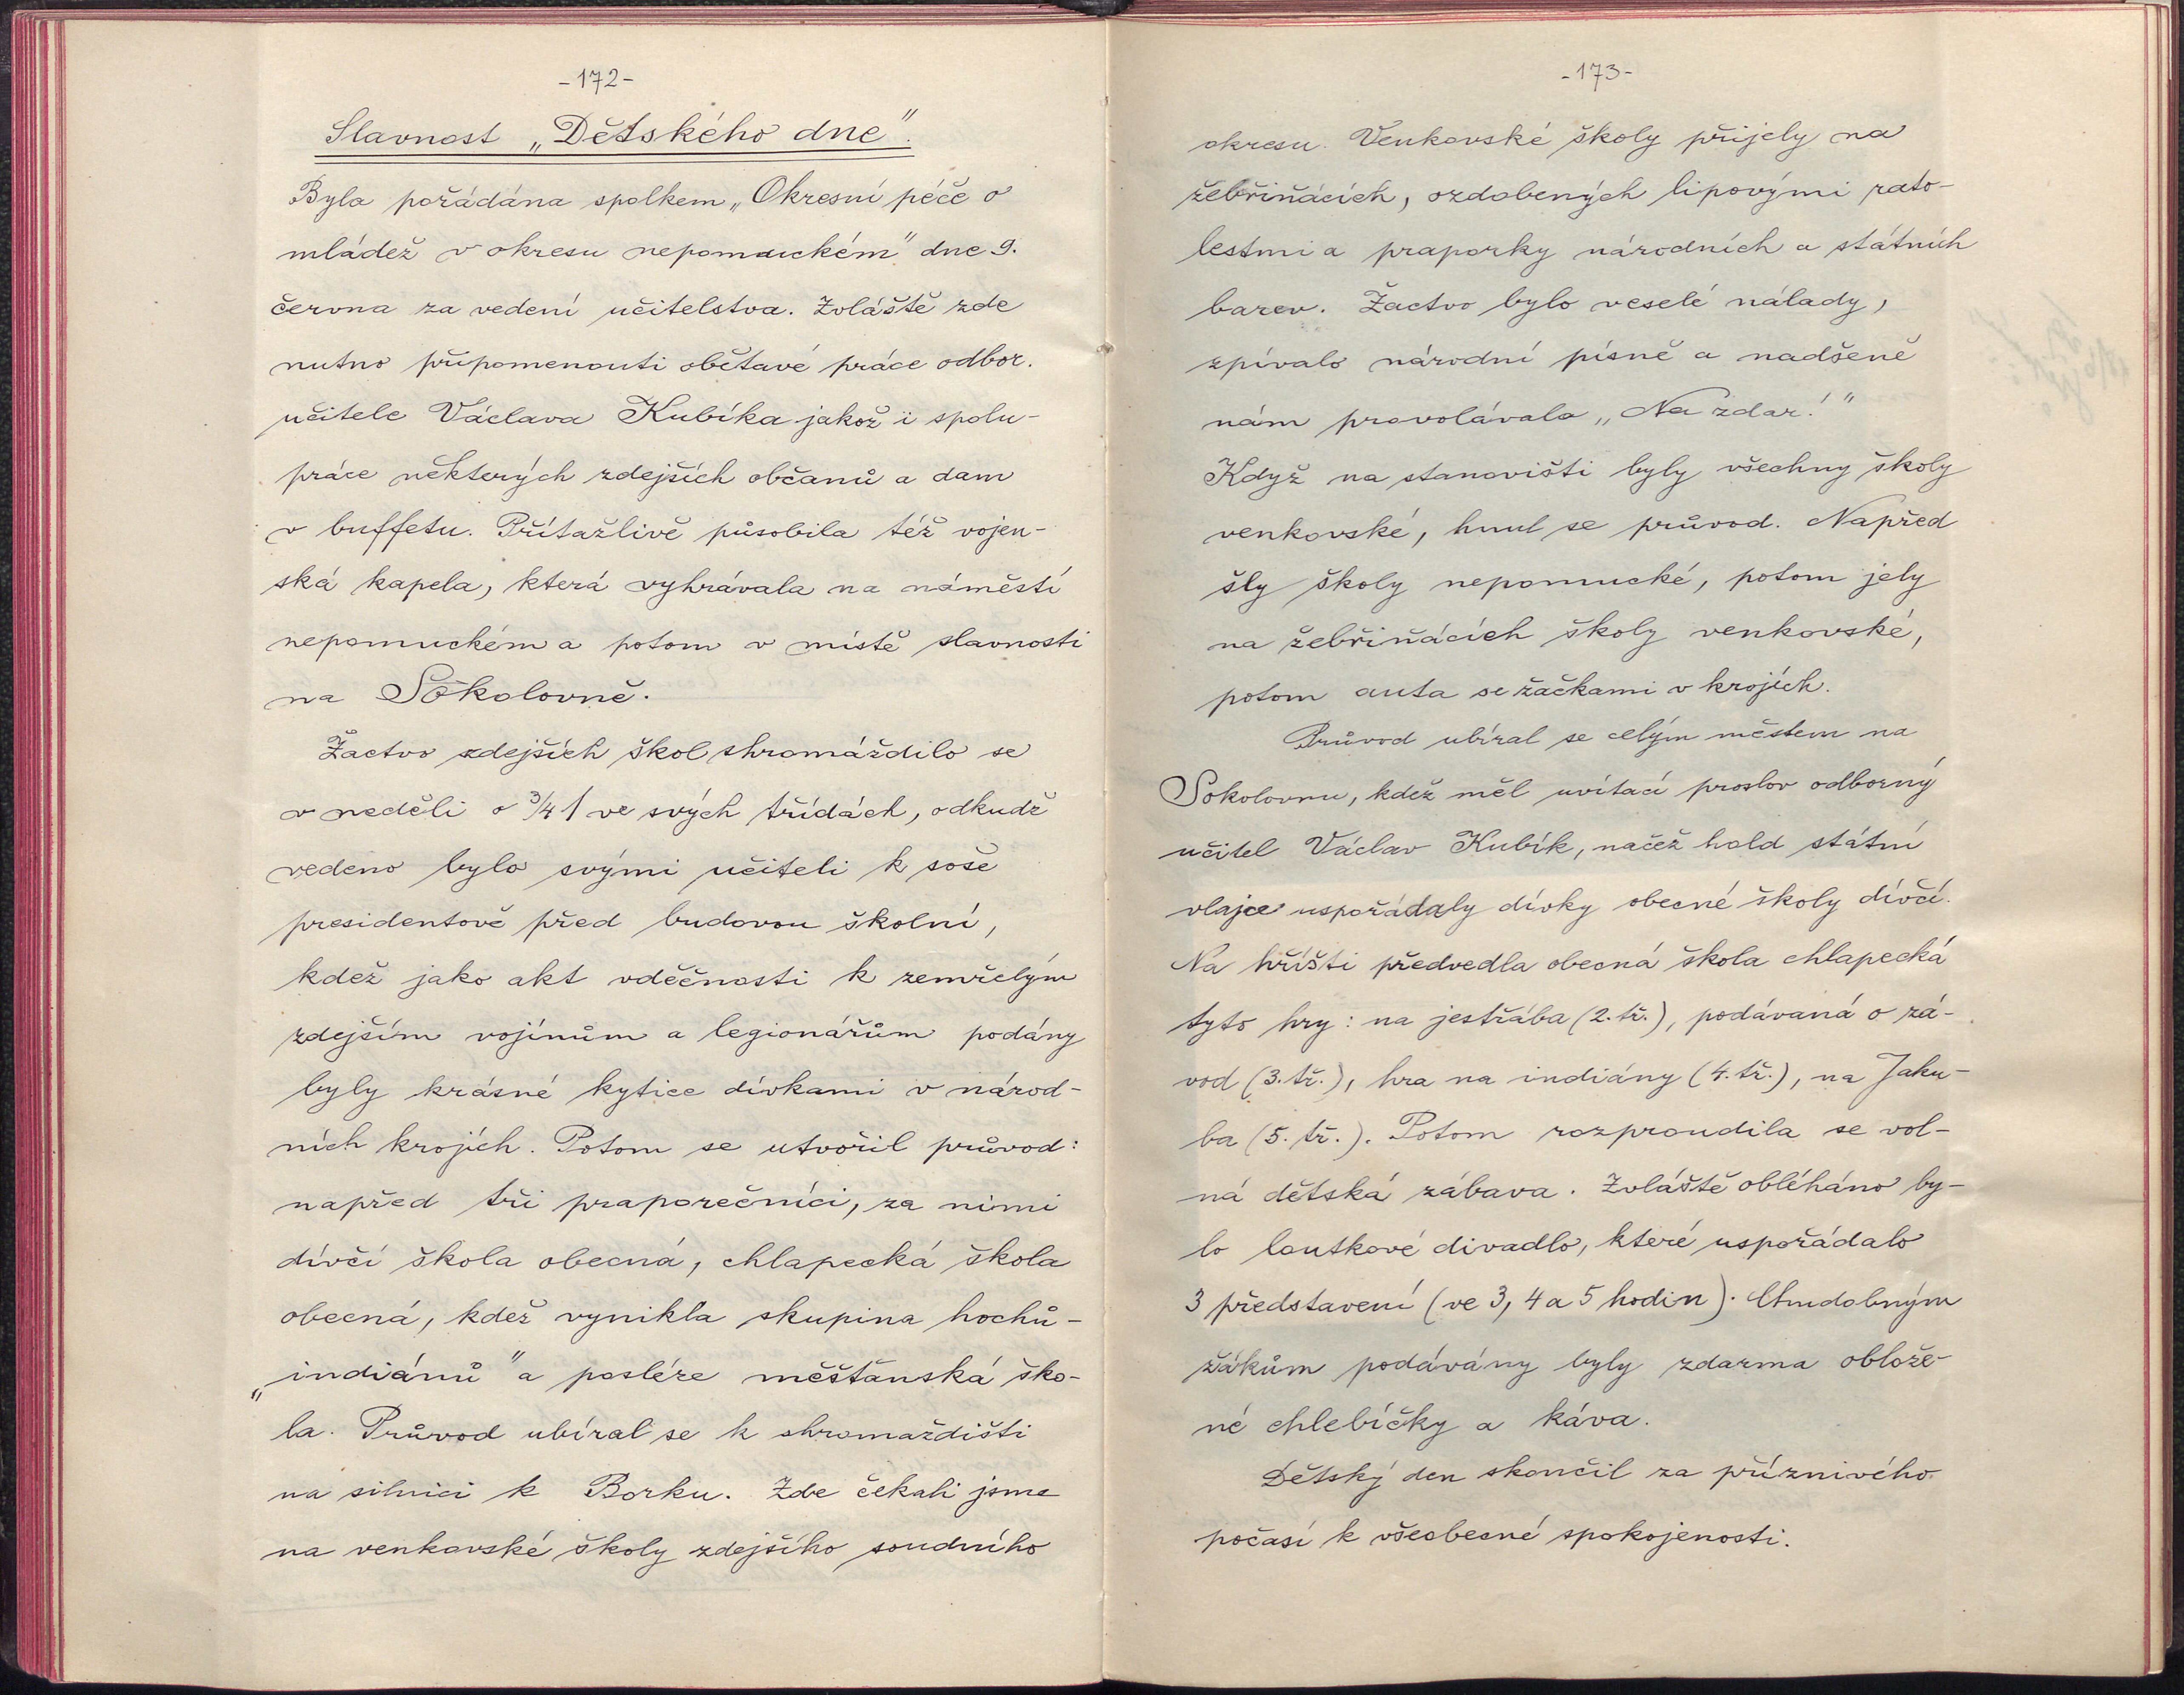 -172-
Slavnost „Dětského dne".
Byla pořádána spolkem „Okresní péče o
mládež v okresu nepomuckém" dne 9.
června za vedení učitelstva. Zvláště zde
nutno připomenouti obětavé práce odbor.
učitele Václava Kubíka jakož i spolu-
práce některých zdejších občanů a dam
v buffetu. Přítažlivě působila též vojen-
ská kapela, která vyhrávala na náměstí
nepomuckém a potom v místě slavnosti
na Sokolovně.
Žactvo zdejších škol shromáždilo se
v neděli o 3/4 1 ve svých třídách, odkudž
vedeno bylo svými učiteli k soše
presidentově před budovou školní,
kdež jako akt vděčnosti k zemřelým
zdejším vojínům a legionářům podány
byly krásné kytice dívkami v národ-
ních krojích. Potom se utvořil průvod:
napřed tři praporečníci, za nimi
dívčí škola obecná, chlapecká škola
obecná, kdež vynikla skupina hochů-
„indiánů" a posléze měšťanská ško-
la. Průvod ubíral se k shromaždišti
na silnici k Borku. Zde čekali jsme
na venkovské školy zdejšího soudního
-173-
okresu. Venkovské školy přijely na
žebřiňácích, ozdobených lipovými rato-
lestmi a praporky národních a státních
barev. Žactvo bylo veselé nálady,
zpívalo národní písně a nadšeně
nám provolávalo „Na zdar!"
Když na stanovišti byly všechny školy
venkovské, hnul se průvod. Napřed
šly školy nepomucké, potom jely
na žebřiňácích školy venkovské,
potom auta se žačkami v krojích.
Průvod ubíral se celým městem na
Sokolovnu, kdež měl uvítací proslov odborný
učitel Václav Kubík, načež hold státní
vlajce uspořádaly dívky obecné školy dívčí.
Na hřišti předvedla obecná škola chlapecká
tyto hry: na jestřába (2. tř.), podávaná o zá-
vod (3. tř.), hra na indiány (4. tř.), na Jaku-
ba (5. tř.). Potom rozproudila se vol-
ná dětská zábava. Zvláště obléháno by-
lo loutkové divadlo, které uspořádalo
3 představení (ve 3, 4 a 5 hodin). Chudobným
žákům podávány byly zdarma oblože-
né chlebíčky a káva.
Dětský den skončil za příznivého
počasí k všeobecné spokojenosti.